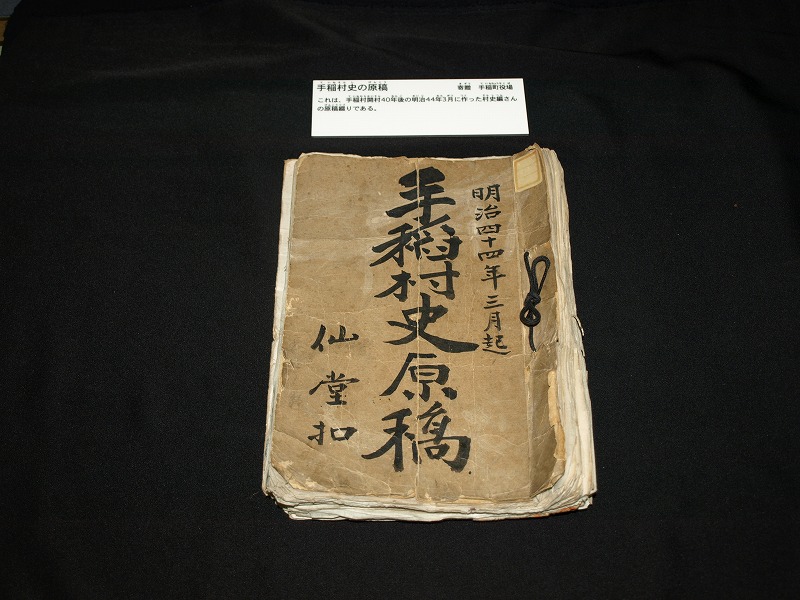 手稲村史の原稿 寄贈 手稲町役場
これは、手稲村開村40年後の明治44年3月に作った村史編さん
の原稿綴りである。
明治四十四年三月起
手稲村史原稿
仙堂扣